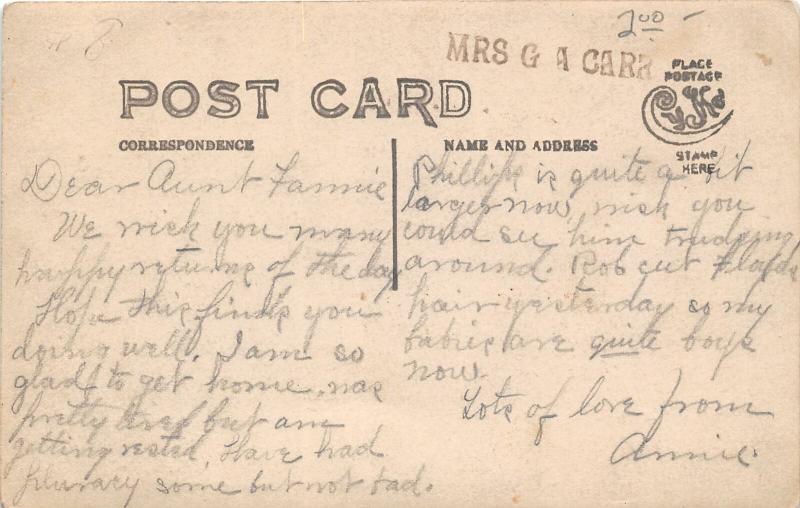 2 00
MRS G A CARR
PLACE
POSTAGE
CyKo
STAMP
HERE
POST CARD
CORRESPONDENCE
NAME AND ADDRESS
Dear Aunt Fannie
We wish you many
happy returns of the day
Hope this finds you
doing well. I am so
glad to get home, was
pretty tired but am
getting rested, Have had
pluracy some but not bad.
Phillip is quite a bit
larger now, wish you
could see him trudging
around. Rob cut
hair yesterday so my
babies are quite boys
now.
Lots of love from
Annie.